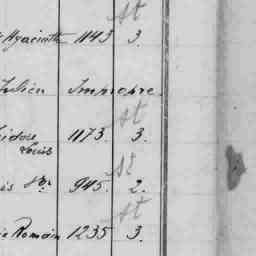 st
Hyacinthe 1143 3.
Julien Impropre.
st
Isidore 1173. 3.
Louis
st
945. 2.
st
Romain 1235 3.